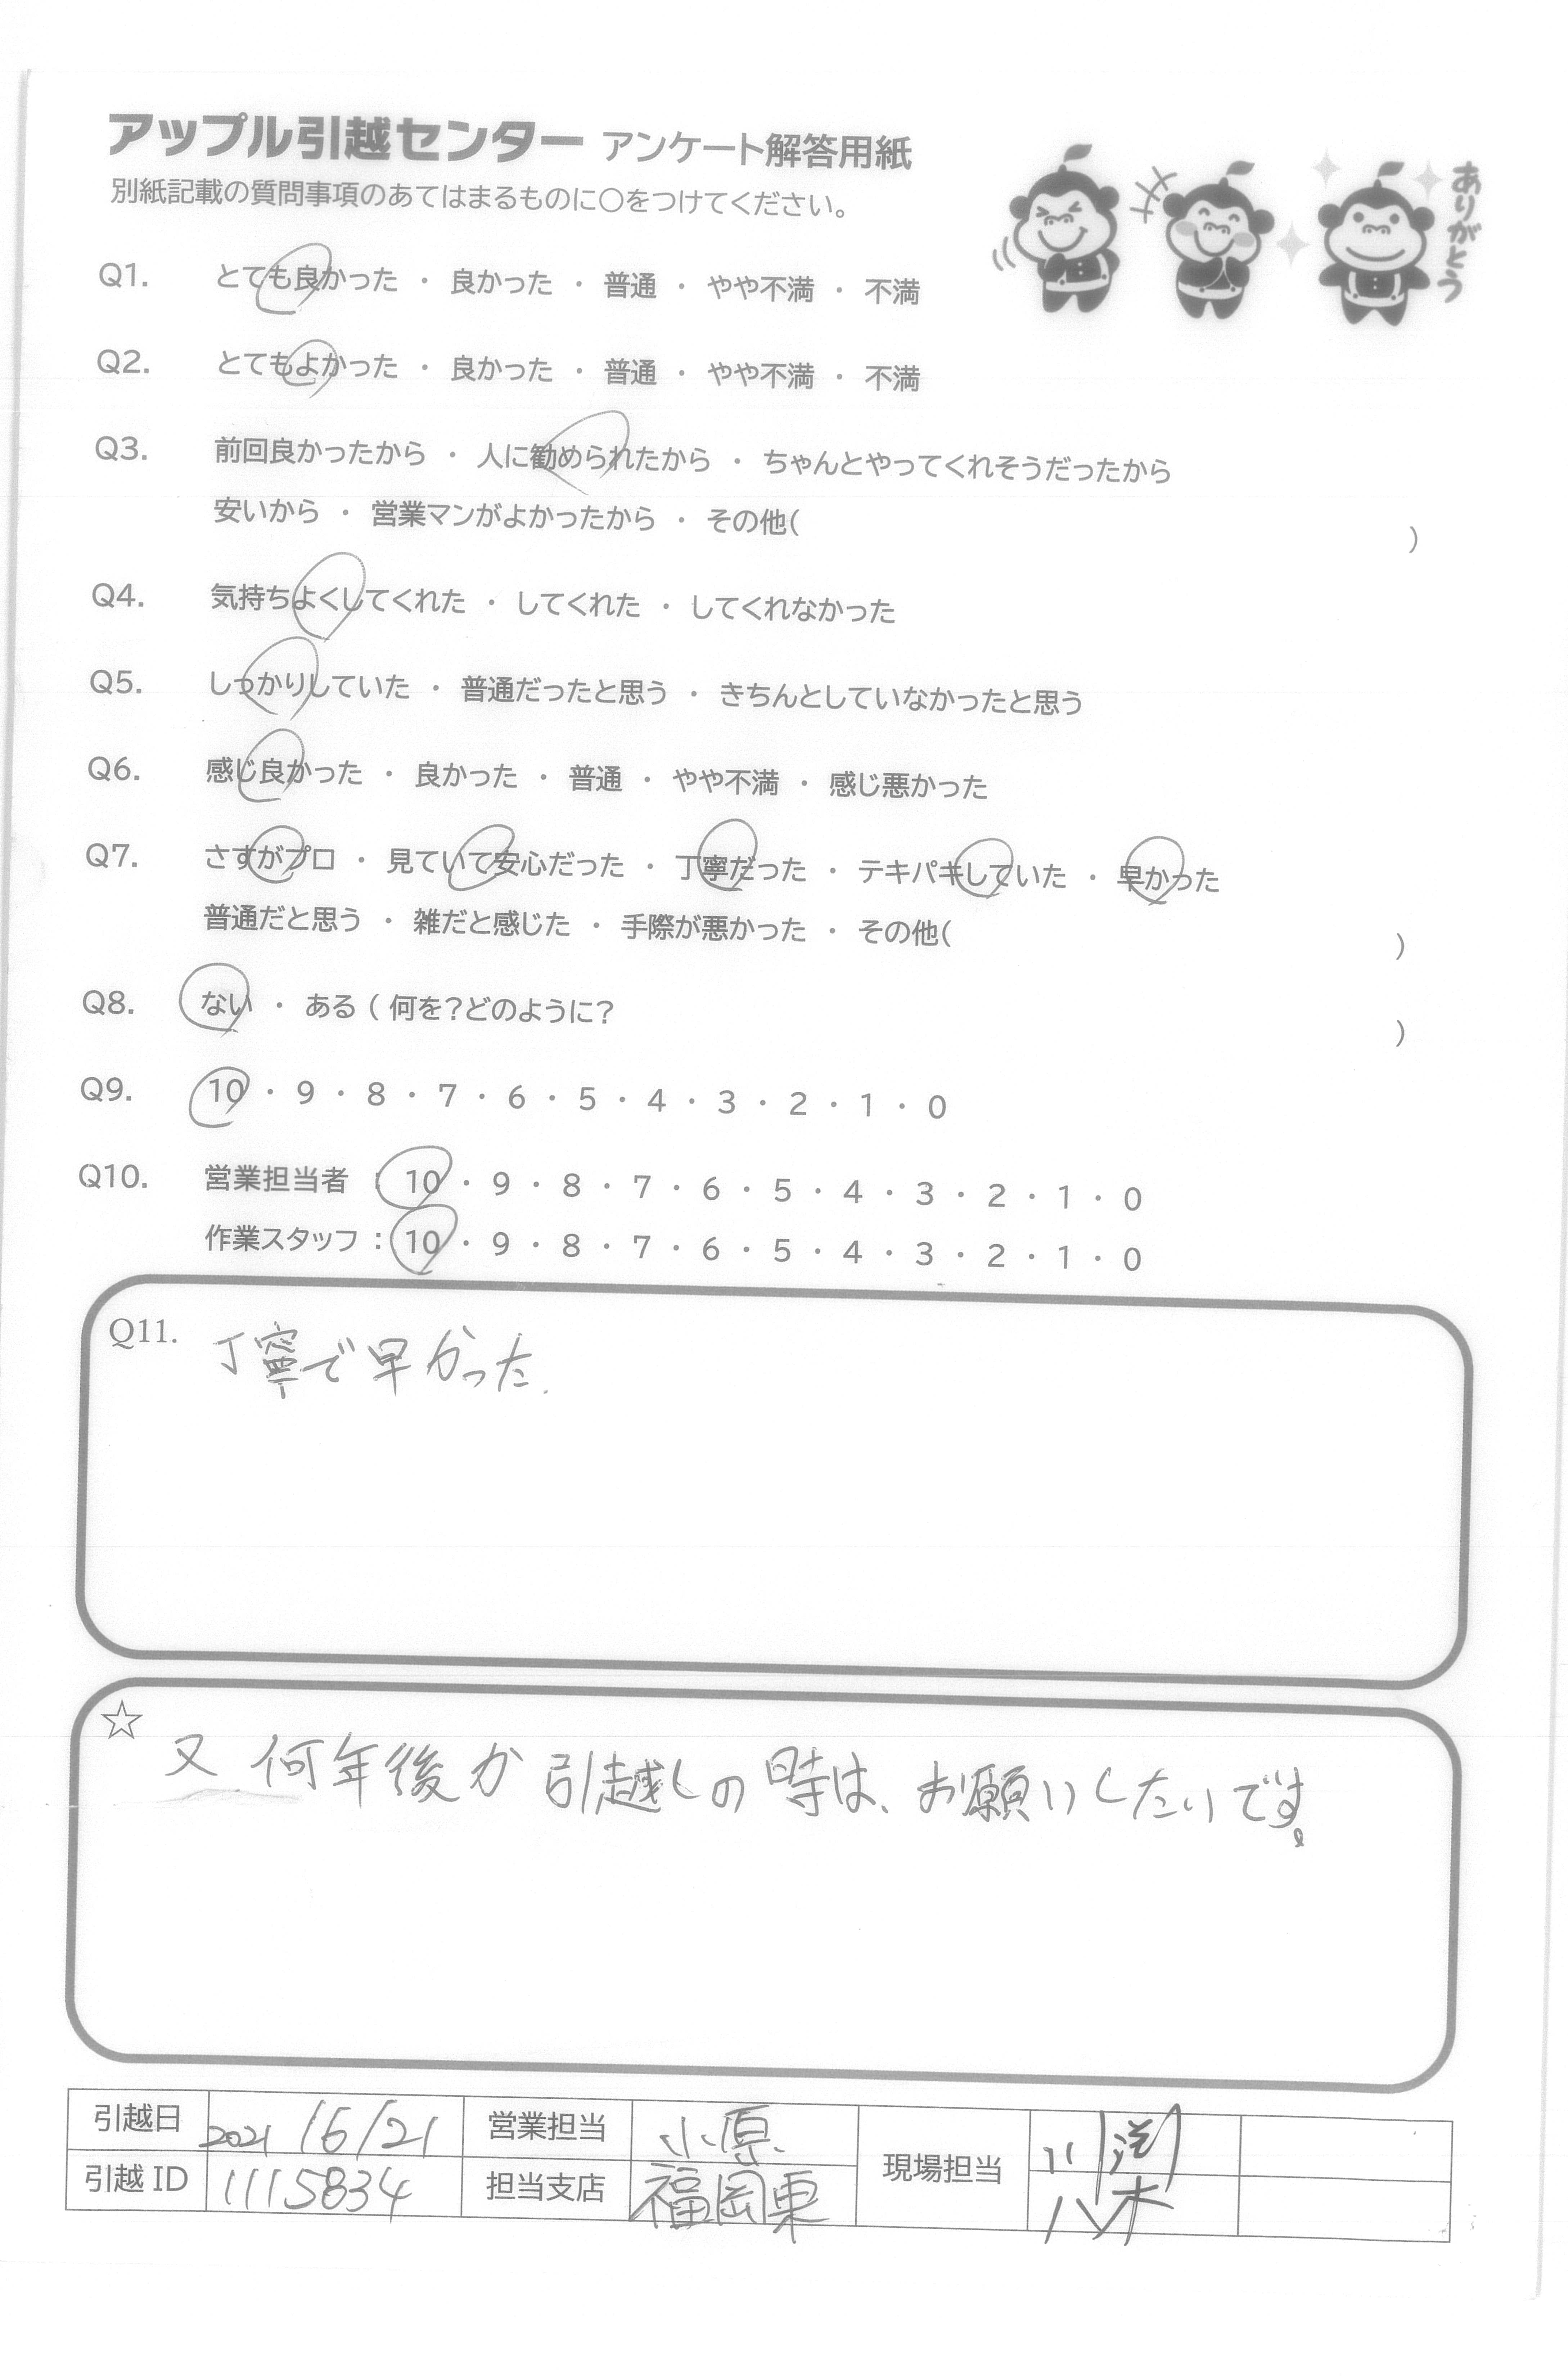 アップル引越センター アンケート解答用紙
別紙記載の質問事項のあてはまるものに○をつけてください。
ありがとう
Q1. とても良かった ・ 良かった ・ 普通 ・ やや不満 ・ 不満
Q2. とてもよかった ・ 良かった ・ 普通 ・ やや不満 ・ 不満
Q3. 前回良かったから ・ 人に勧められたから ・ ちゃんとやってくれそうだったから
安いから ・ 営業マンがよかったから ・ その他( )
Q4. 気持ちよくしてくれた ・ してくれた ・ してくれなかった
Q5. しっかりしていた ・ 普通だったと思う ・ きちんとしていなかったと思う
Q6. 感じ良かった ・ 良かった ・ 普通 ・ やや不満 ・ 感じ悪かった
Q7. さすがプロ ・ 見ていて安心だった ・ 丁寧だった ・ テキパキしていた ・ 早かった
普通だと思う ・ 雑だと感じた ・ 手際が悪かった ・ その他( )
Q8. ない ・ ある ( 何を?どのように? )
Q9. 10 ・ 9 ・ 8 ・ 7 ・ 6 ・ 5 ・ 4 ・ 3 ・ 2 ・ 1 ・ 0
Q10. 営業担当者 : 10 ・ 9 ・ 8 ・ 7 ・ 6 ・ 5 ・ 4 ・ 3 ・ 2 ・ 1 ・ 0
作業スタッフ : 10 ・ 9 ・ 8 ・ 7 ・ 6 ・ 5 ・ 4 ・ 3 ・ 2 ・ 1 ・ 0
Q11. 丁寧で早かった.
☆ 又 何年後か 引越しの時は、お願いしたいです。
引越日 2021 /6/21 営業担当 小原 現場担当
引越 ID 1115834 担当支店 福岡東 八木